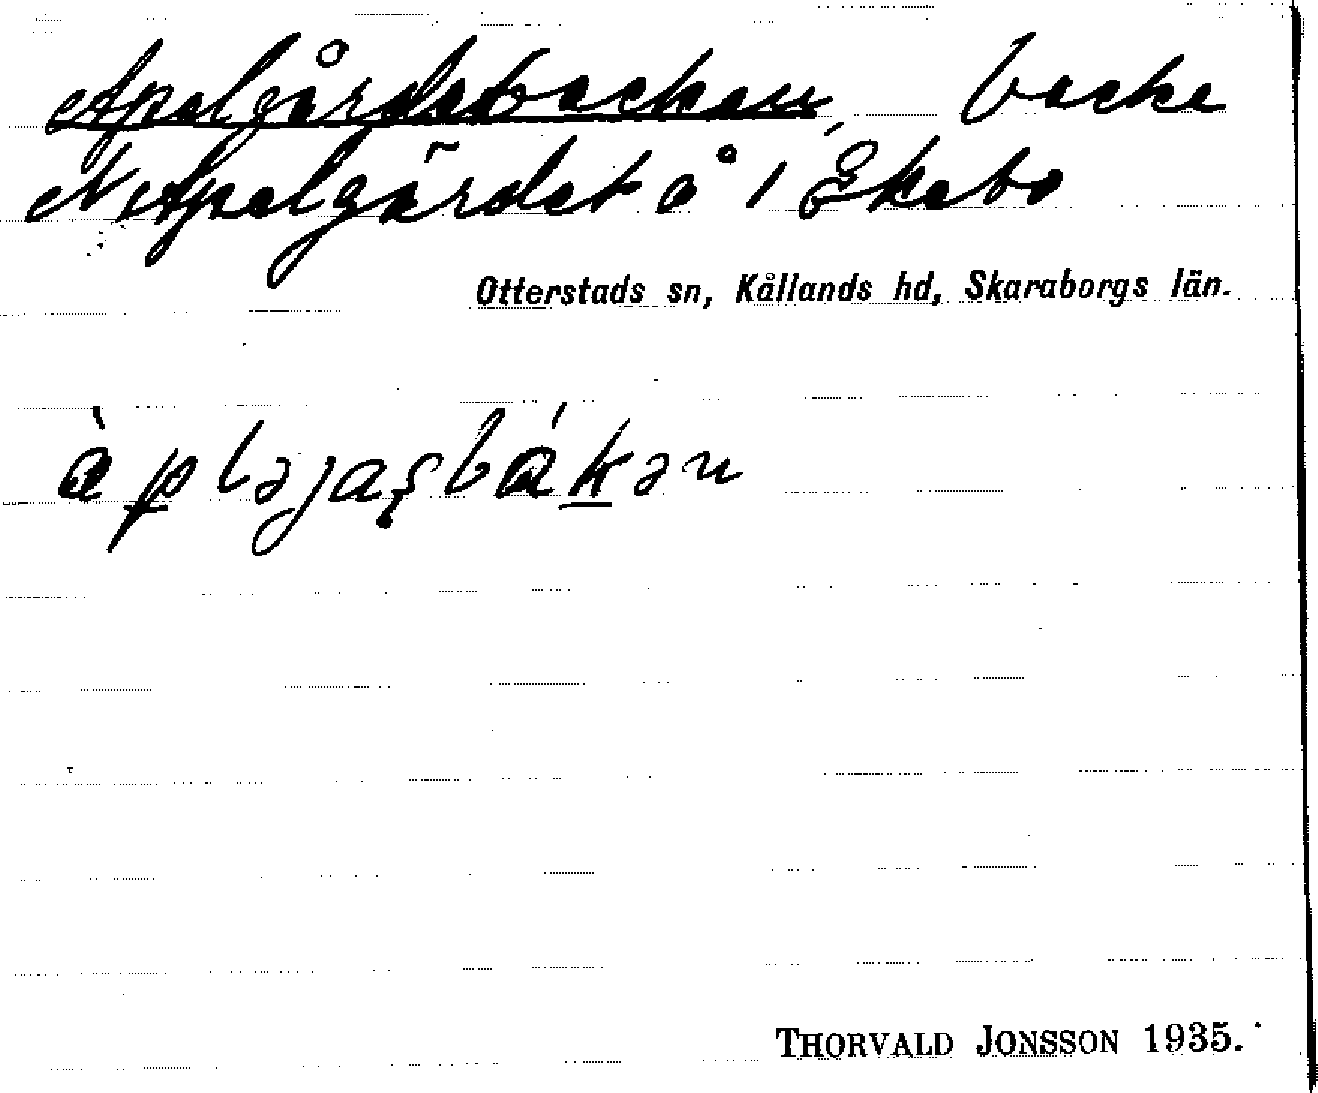 Apelgårdsbacken, backe
N Apelgärdet å 1 Ekebo
Otterstads sn, Kållands hd, Skaraborgs län.
àpləjaʂbákən
THORVALD JONSSON 1935.